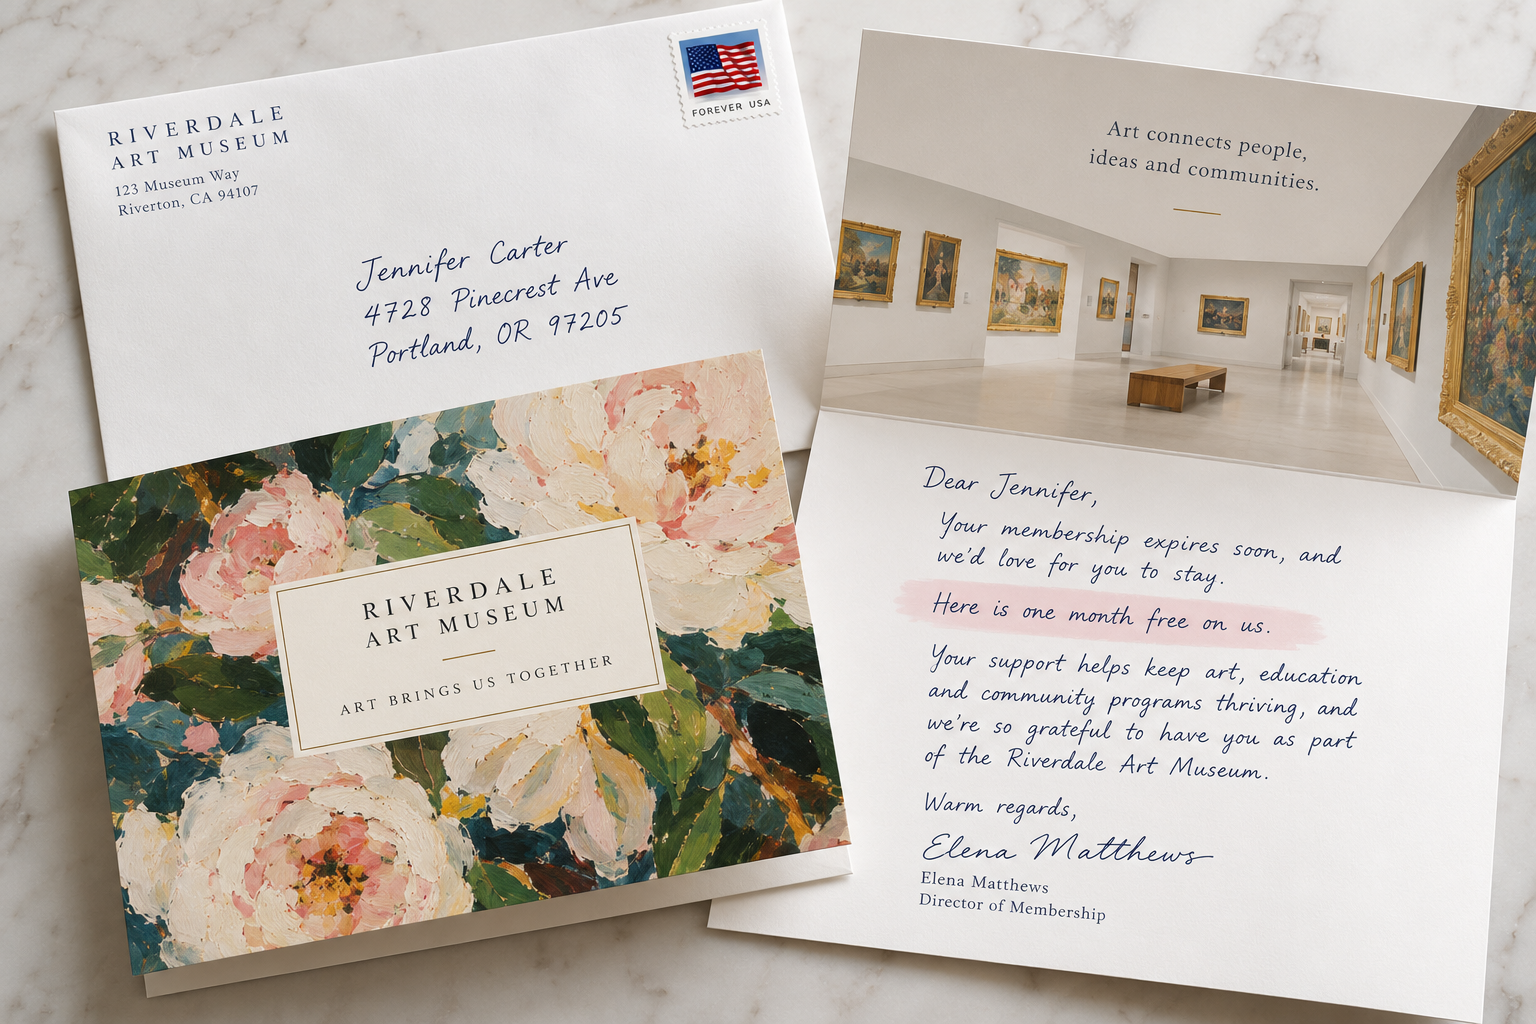 RIVERDALE
ART MUSEUM
123 Museum Way
Riverton, CA 94107
FOREVER USA
Jennifer Carter
4728 Pinecrest Ave
Portland, OR 97205
RIVERDALE
ART MUSEUM
ART BRINGS US TOGETHER
Art connects people,
ideas and communities.
Dear Jennifer,
Your membership expires soon, and
we'd love for you to stay.
Here is one month free on us.
Your support helps keep art, education
and community programs thriving, and
we're so grateful to have you as part
of the Riverdale Art Museum.
Warm regards,
Elena Matthews
Elena Matthews
Director of Membership